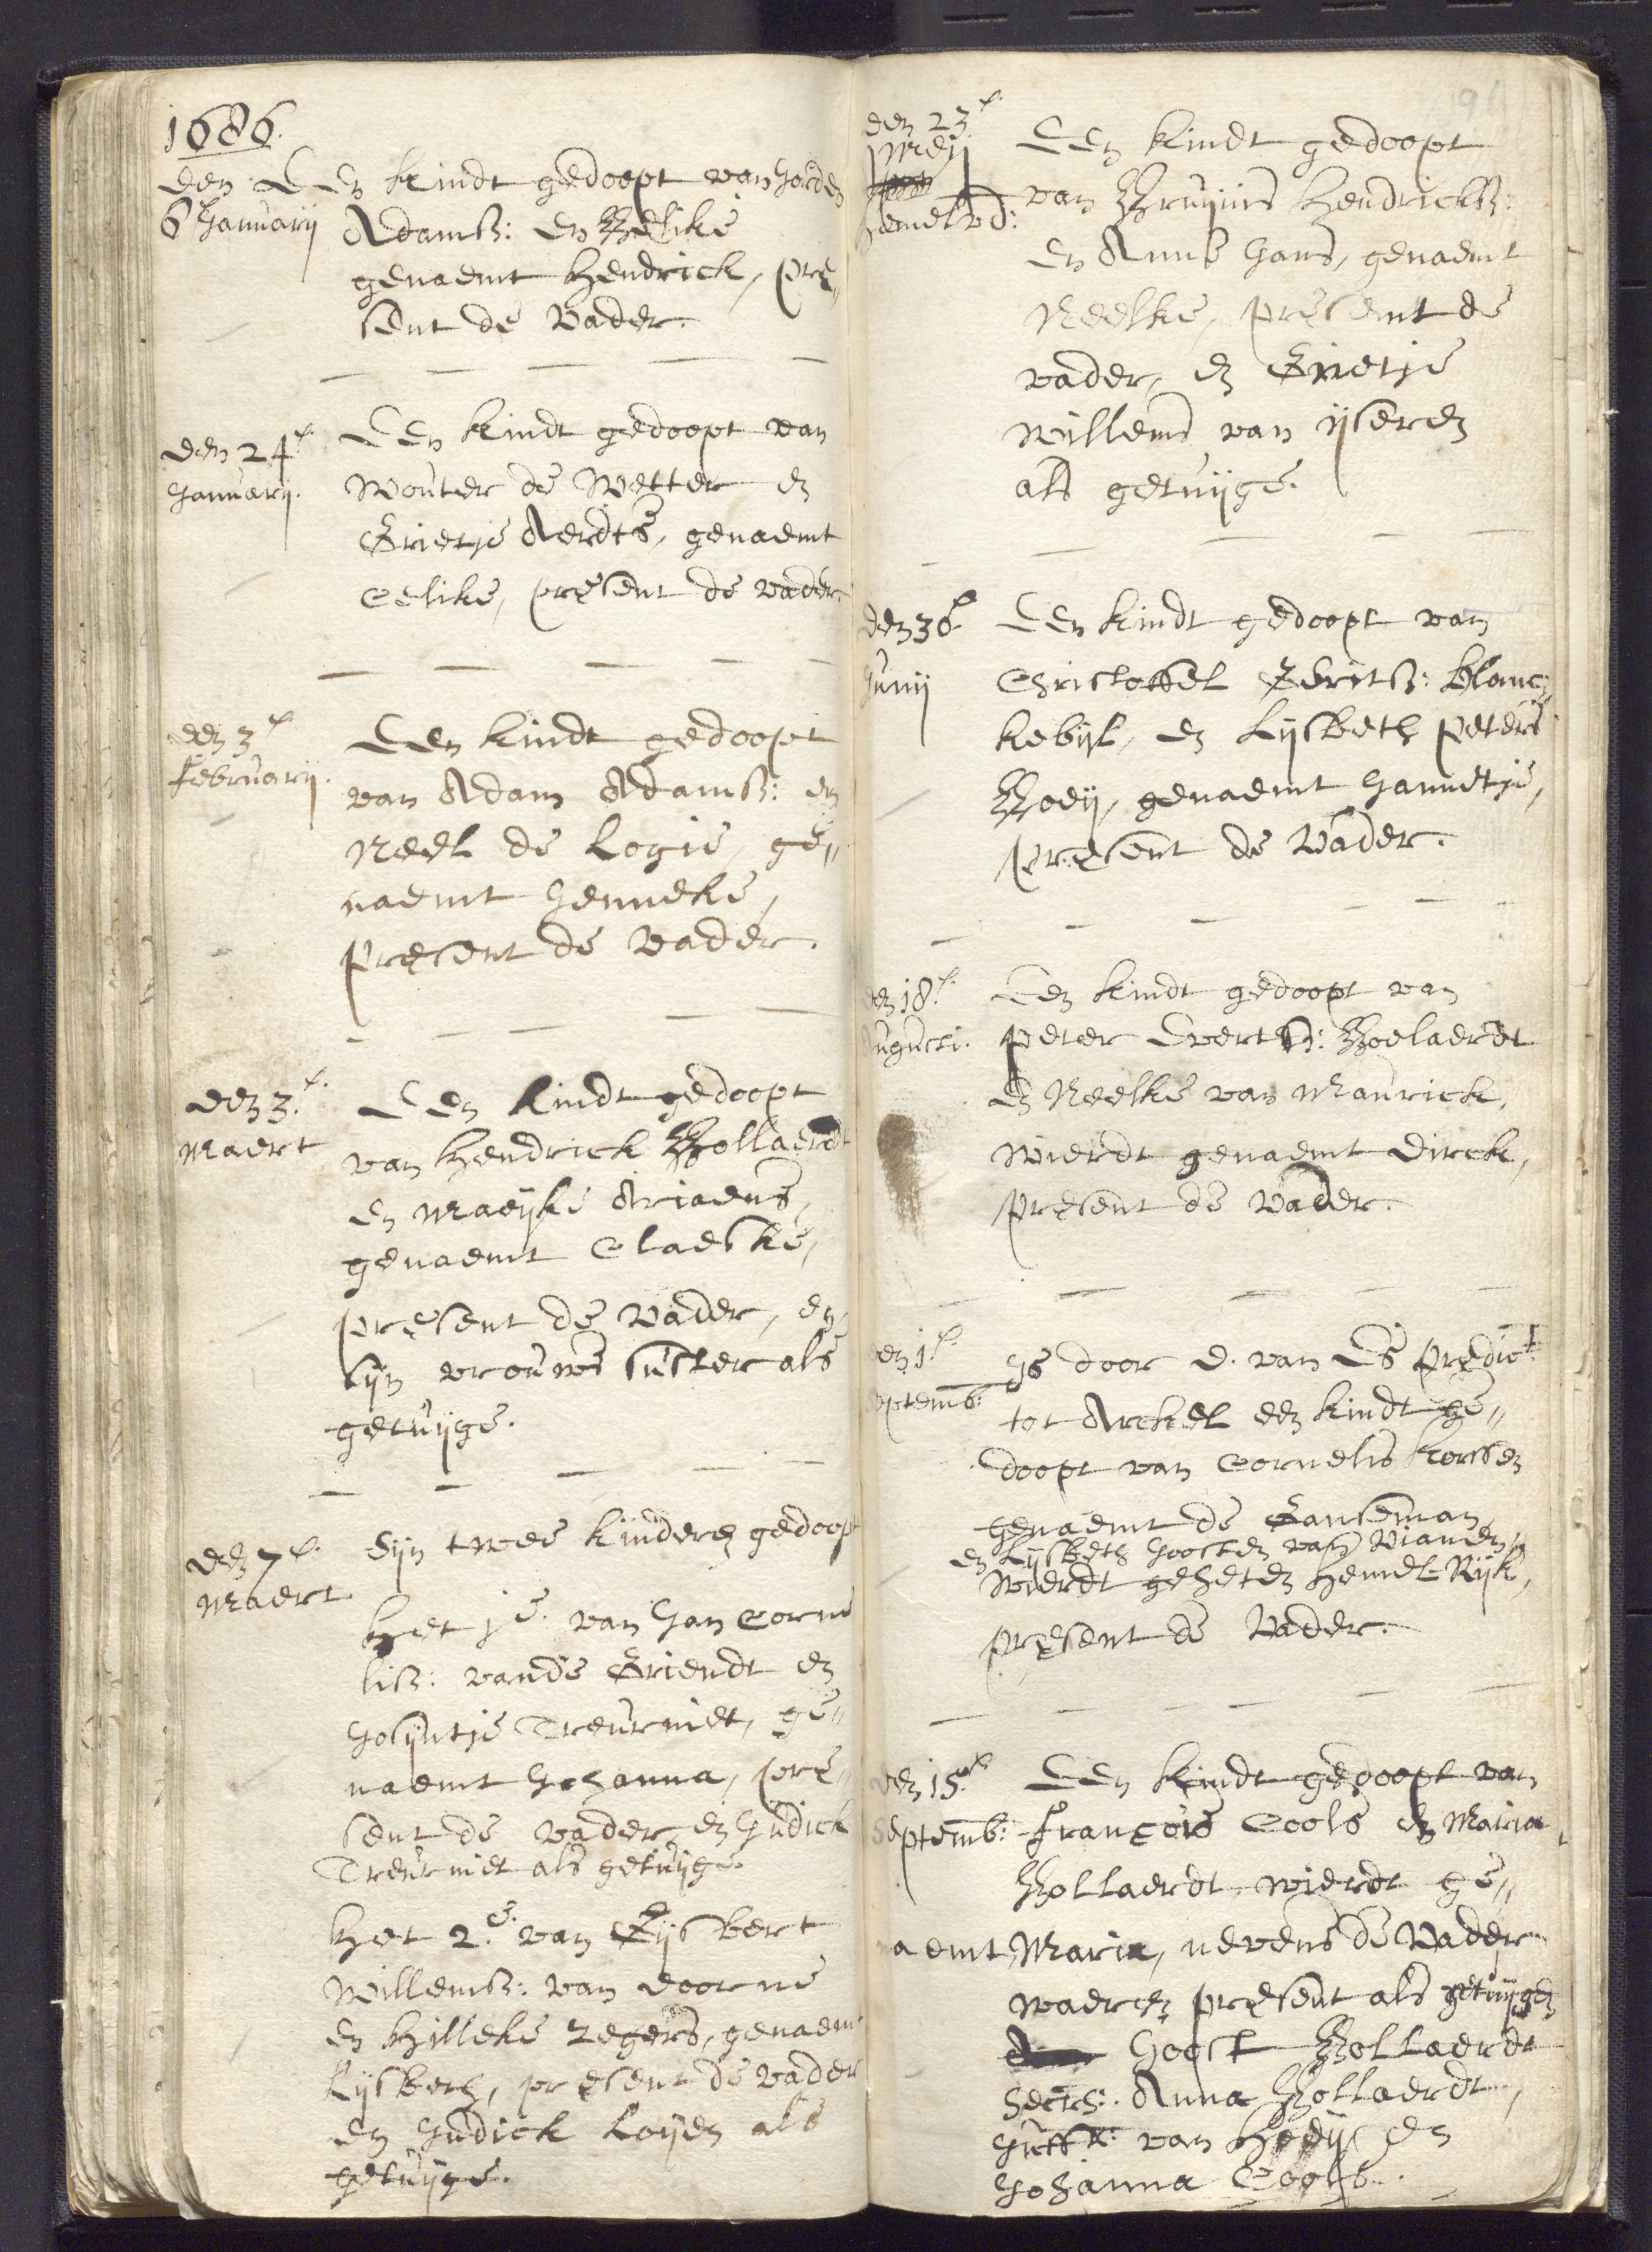 1686.
den
6 Januarij
Een kindt gedoopt van
Adamsz: en Belike
genaemt Hendrick, pre„
sent de Vader.
den 24e.
Januarij.
Een kindt gedoopt van
Wouter de Wetter en
Grietje Aerdts, genaemt
Eelike, present de vader
den 3e.
februarij.
Een kindt gedoopt
van Adam Adamsz: en
Neel de Logie, ge„
naemt Jenneke,
present de vader.
den 3e.
Maert
Een kindt gedoopt
van Hendrick Bollaerdt
en Maeijke Ariaens,
genaemt Claeske,
present de Vader, en
sijn vrouws suster als
getuijge.
den 7e.
Maert
Sijn twee kinderen gedoopt
Het 1e. van Jan Corne
lisz: vande Griendt en
Josijntje Treurniet, ge„
naemt Johanna, pre„
sent de vader, en Judick
Treurniet als getuijge.
Het 2e. van Gijsbert
Willemsz: van Doorne
en Hilleke Zegers, genaemt
Lijsbeth, present de vader
en Judick Loijen als
getuijge.
den 23e.
Meij
hemelvd:
Een kindt gedoopt
van Bruijnis Hendricksz:
en Anne Jans, genaemt
Neelke, present de
vader, en Grietje
Willems van ijseren
als getuijge.
den 30e
Junij
Een kindt gedoopt van
Christoffel Geritsz: Blanc„
kebijl, en Lijsbeth Peters
Boeij, genaemt Jannetje,
present de Vader.
den 18e.
Augusti.
Een kindt gedoopt van
Peter Evertsz: Boelaerdt
en Neelke van Maurick,
wierdt genaemt Dirck,
present de Vader.
den 1e.
Septemb:
Is door D. van Es predict:
tot Arckel een kindt ge„
doopt van Cornelis Korssen
genaemt de Ganseman
en Lijsbeth Joosten van Vianen,
wierdt geheten Hemel-Rijk,
present de Vader.
den 15e.
Septemb:
Een kindt gedoopt van
François Cools en Maria
Bollaerdt, wierdt ge„
naemt Maria, nevens de Vader
waeren present als getuijgen
Joost Bollaerdt
Anna Bollaerdt,
Juffr: van en
Johanna Cools.